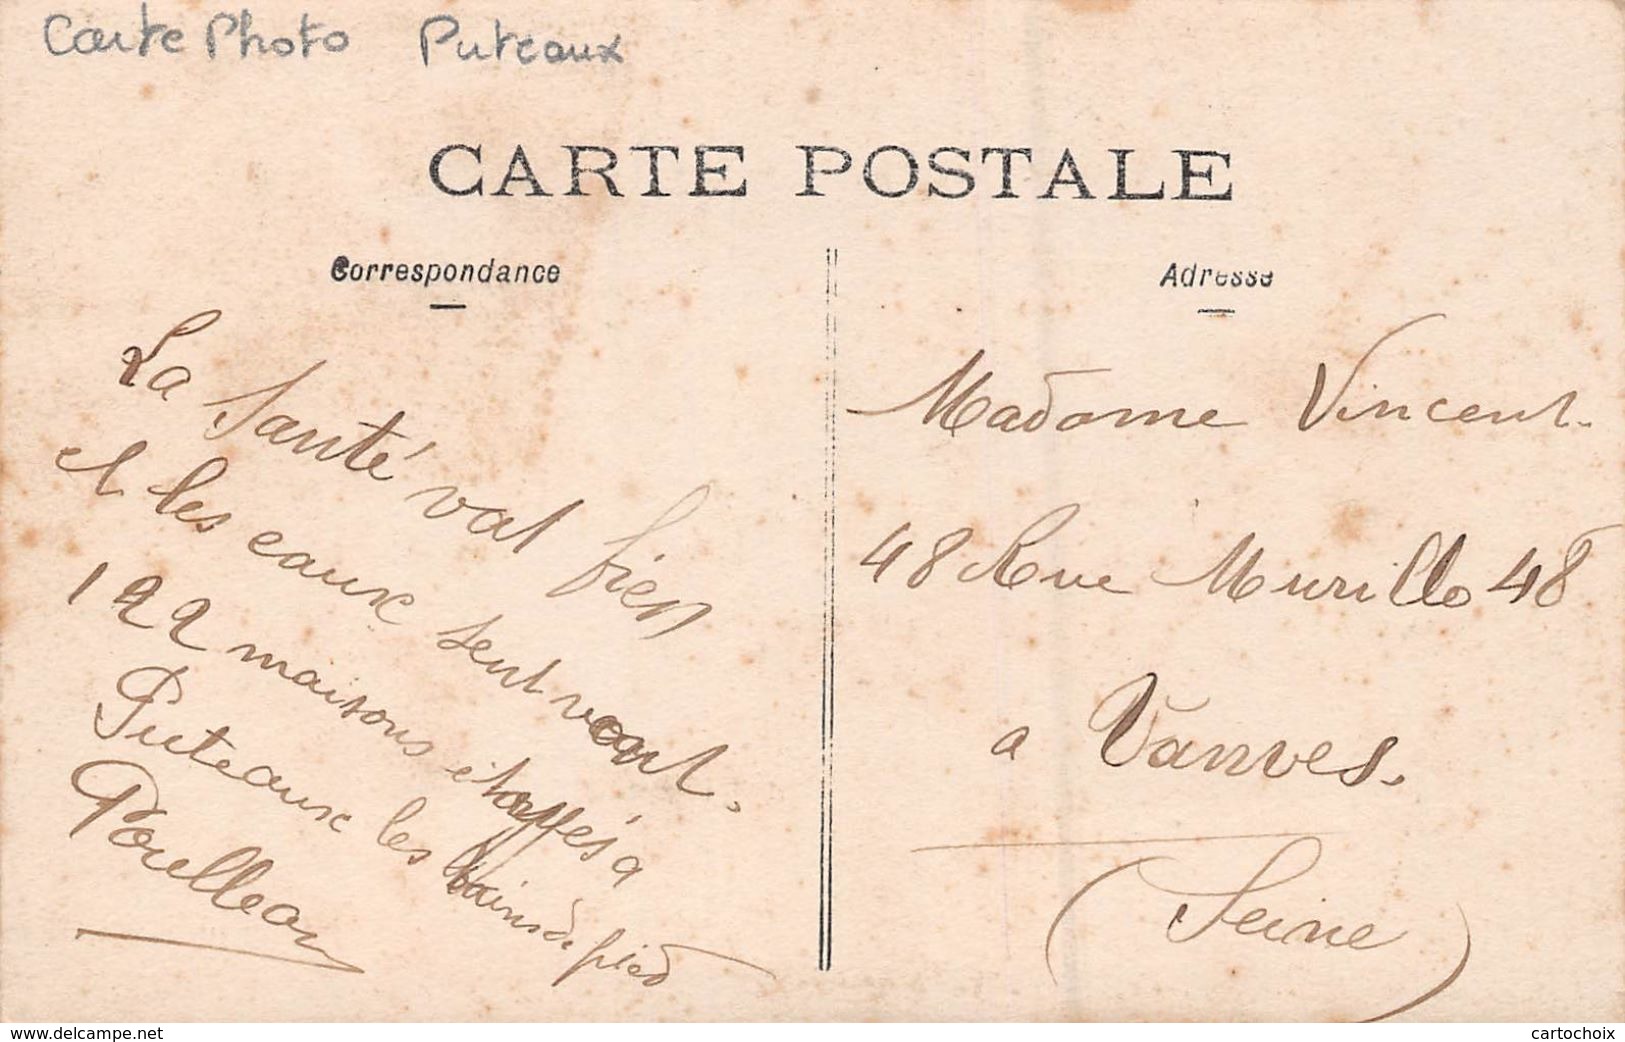 Carte Photo Puteaux
CARTE POSTALE
Correspondance
La Santé vat bien
et les eaux sent vont.
122 maisons
Puteaux les bains de pied
Adresse
Madame Vincent.
48 Rue Murillo 48
a Vanves.
(Seine)
www.delcampe.net
cartochoix